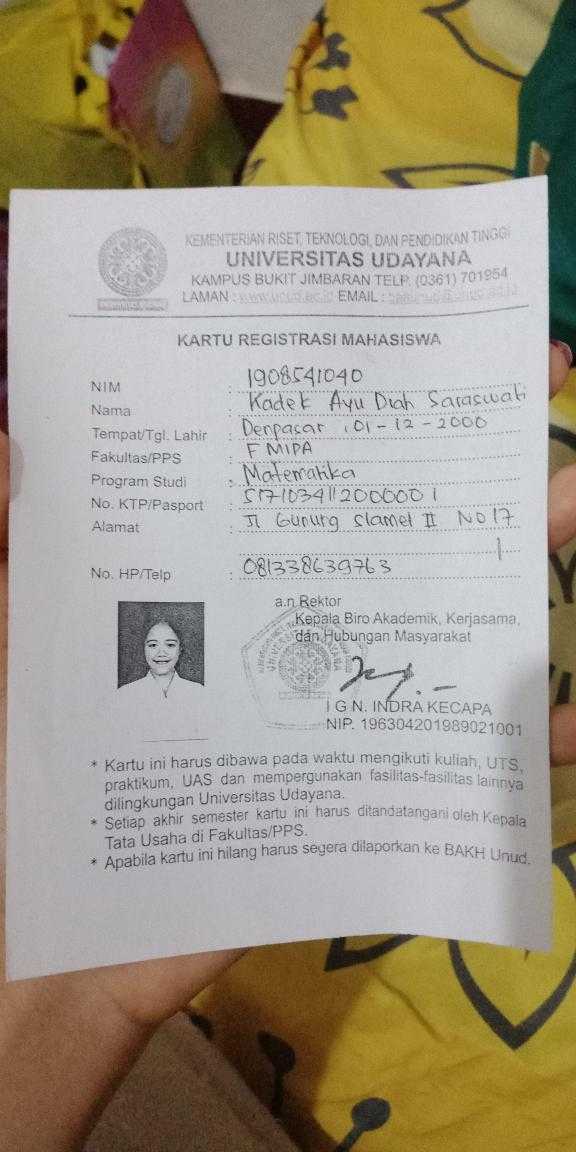 KEMENTERIAN RISET, TEKNOLOGI, DAN PENDIDIKAN TINGGI
UNIVERSITAS UDAYANA
KAMPUS BUKIT JIMBARAN TELP. (0361) 701954
LAMAN : www.unud.ac.id EMAIL :
KARTU REGISTRASI MAHASISWA
NIM : 1908541040
Nama : Kadek Ayu Diah Saraswati
Tempat/Tgl. Lahir : Denpasar , 01 - 12 - 2000
Fakultas/PPS : FMIPA
Program Studi : Matematika
No. KTP/Pasport : 5171034112000001
Alamat : Jl Gunung Slamet II No 17
No. HP/Telp : 081338639763
a.n Rektor
Kepala Biro Akademik, Kerjasama,
dan Hubungan Masyarakat
UNIVERSITAS UDAYANA
I G N. INDRA KECAPA
NIP. 196304201989021001
* Kartu ini harus dibawa pada waktu mengikuti kuliah, UTS,
praktikum, UAS dan mempergunakan fasilitas-fasilitas lainnya
dilingkungan Universitas Udayana.
* Setiap akhir semester kartu ini harus ditandatangani oleh Kepala
Tata Usaha di Fakultas/PPS.
* Apabila kartu ini hilang harus segera dilaporkan ke BAKH Unud.